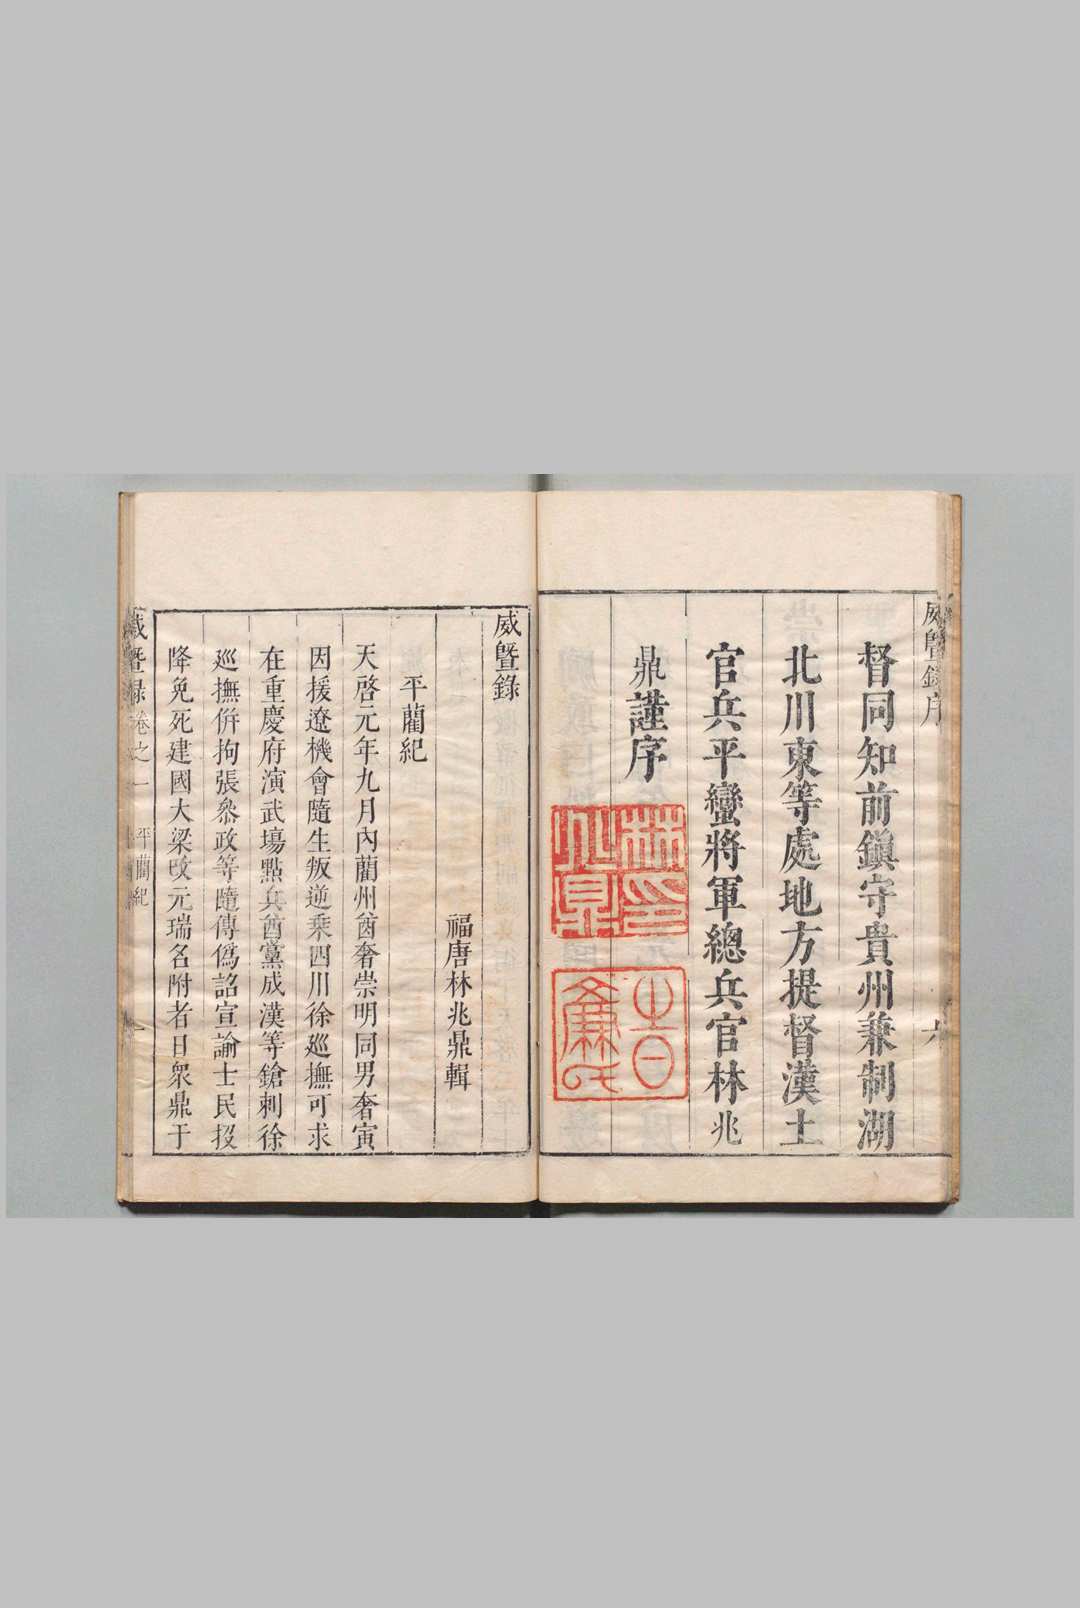 威曁錄序
督同知前鎭守貴州兼制湖
北川東等處地方提督漢土
官兵平蠻將軍總兵官林兆
鼎謹序
林兆鼎印
威曁錄
福唐林兆鼎輯
平藺紀
天啓元年九月內藺州酋奢崇明同男奢寅
因援遼機會隨生叛逆乘四川徐巡撫可求
在重慶府演武塲點兵酋黨成漢等鎗刺徐
巡撫併拘張叅政等隨傳僞詔宣諭士民投
降免死建國大梁改元瑞名附者日衆鼎于
威曁録 卷之一 平藺紀 一